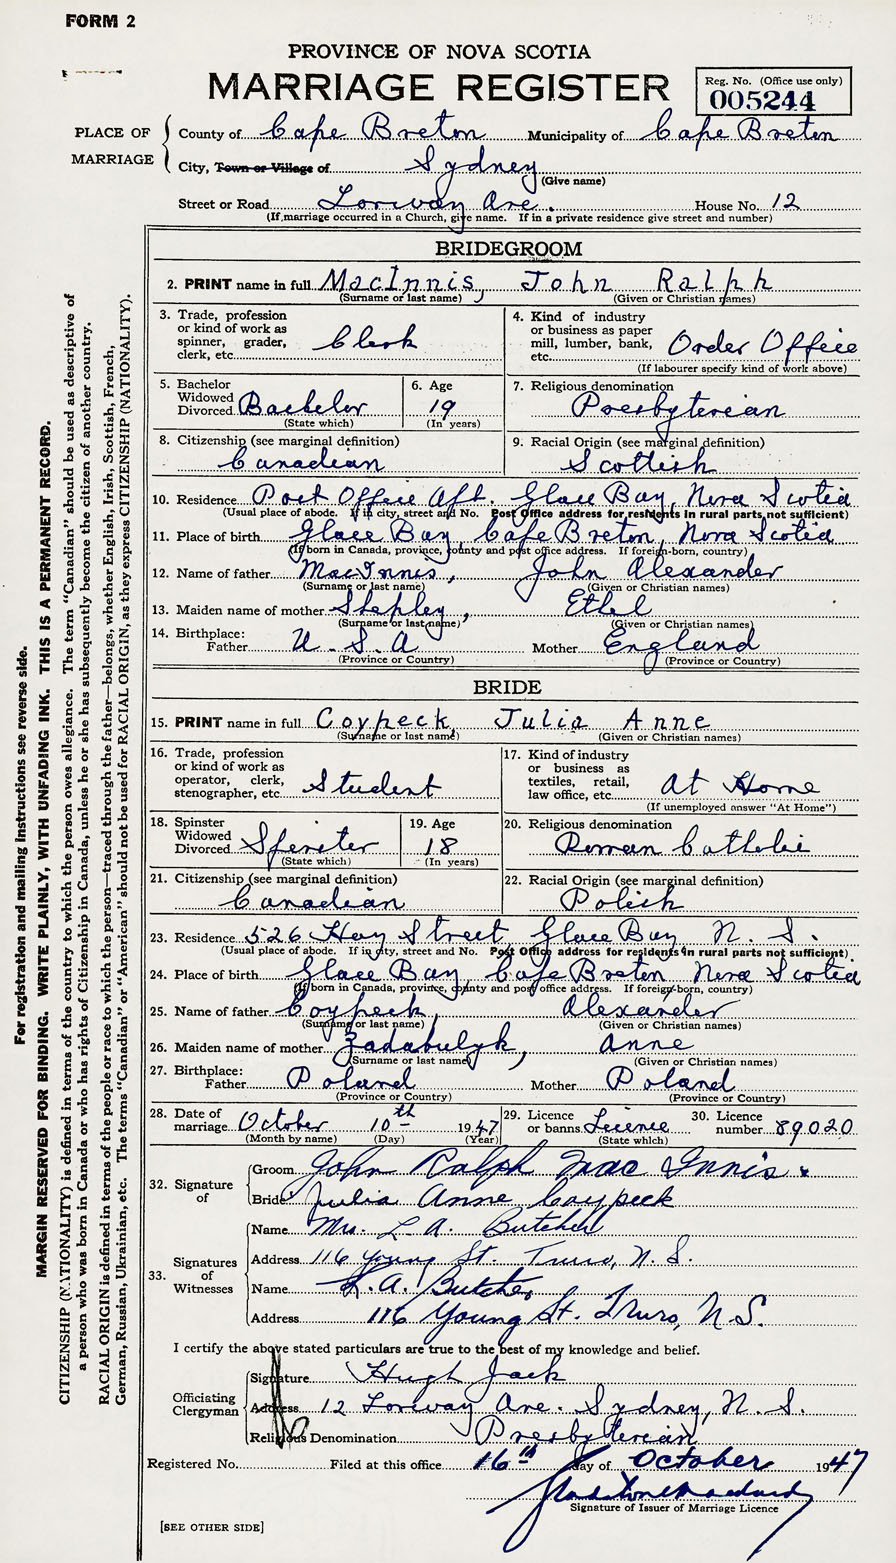 FORM 2
PROVINCE OF NOVA SCOTIA
MARRIAGE REGISTER
Reg. No. (Office use only)
005244
PLACE OF MARRIAGE
County of Cape Breton Municipality of Cape Breton
City, Town or Village of Sydney
(Give name)
Street or Road Lorway Ave. House No. 12
(If marriage occurred in a Church, give name. If in a private residence give street and number)
BRIDEGROOM
2. PRINT name in full MacInnis, John Ralph
(Surname or last name) (Given or Christian names)
3. Trade, profession or kind of work as spinner, grader, clerk, etc. Clerk
4. Kind of industry or business as paper mill, lumber, bank, etc. Order Office
(If labourer specify kind of work above)
5. Bachelor Widowed Divorced Bachelor
(State which)
6. Age 19
(In years)
7. Religious denomination
Presbyterian
8. Citizenship (see marginal definition)
Canadian
9. Racial Origin (see marginal definition)
Scottish
10. Residence Post Office Apt. Glace Bay, Nova Scotia
(Usual place of abode. If in city, street and No. Post Office address for residents in rural parts not sufficient)
11. Place of birth Glace Bay Cape Breton, Nova Scotia
(If born in Canada, province, county and post office address. If foreign-born, country)
12. Name of father MacInnis, John Alexander
(Surname or last name) (Given or Christian names)
13. Maiden name of mother Shepley, Ethel
(Surname or last name) (Given or Christian names)
14. Birthplace:
Father U.S.A Mother England
(Province or Country) (Province or Country)
BRIDE
15. PRINT name in full Coypeck, Julia Anne
(Surname or last name) (Given or Christian names)
16. Trade, profession or kind of work as operator, clerk, stenographer, etc. Student
17. Kind of industry or business as textiles, retail, law office, etc. At Home
(If unemployed answer "At Home")
18. Spinster Widowed Divorced Spinster
(State which)
19. Age 18
(In years)
20. Religious denomination
Roman Catholic
21. Citizenship (see marginal definition)
Canadian
22. Racial Origin (see marginal definition)
Polish
23. Residence 526 Hay Street Glace Bay N. S.
(Usual place of abode. If in city, street and No. Post Office address for residents in rural parts not sufficient)
24. Place of birth Glace Bay, Cape Breton, Nova Scotia
(If born in Canada, province, county and post office address. If foreign-born, country)
25. Name of father Coypeck, Alexander
(Surname or last name) (Given or Christian names)
26. Maiden name of mother Zadabulyk, Anne
(Surname or last name) (Given or Christian names)
27. Birthplace:
Father Poland Mother Poland
(Province or Country) (Province or Country)
28. Date of marriage October 10th 1947
(Month by name) (Day) (Year)
29. Licence or banns Licence
(State which)
30. Licence number 89020
32. Signature of
Groom John Ralph Mac Innis
Bride Julia Anne Coypeck
33. Signatures of Witnesses
Name Mrs. L. A. Butcher
Address 116 Young St. Truro, N. S.
Name L. A. Butcher
Address 116 Young St. Truro, N.S.
I certify the above stated particulars are true to the best of my knowledge and belief.
Officiating Clergyman
Signature Hugh Jack
Address 12 Lorway Ave. Sydney, N. S.
Religious Denomination Presbyterian
Registered No. Filed at this office 16th day of October 1947
Signature of Issuer of Marriage Licence
[SEE OTHER SIDE]
For registration and mailing instructions see reverse side.
MARGIN RESERVED FOR BINDING. WRITE PLAINLY, WITH UNFADING INK. THIS IS A PERMANENT RECORD.
CITIZENSHIP (NATIONALITY) is defined in terms of the country to which the person owes allegiance. The term "Canadian" should be used as descriptive of
a person who was born in Canada or who has rights of Citizenship in Canada, unless he or she has subsequently become the citizen of another country.
RACIAL ORIGIN is defined in terms of the people or race to which the person—traced through the father—belongs, whether English, Irish, Scottish, French,
German, Russian, Ukrainian, etc. The terms "Canadian" or "American" should not be used for RACIAL ORIGIN, as they express CITIZENSHIP (NATIONALITY).